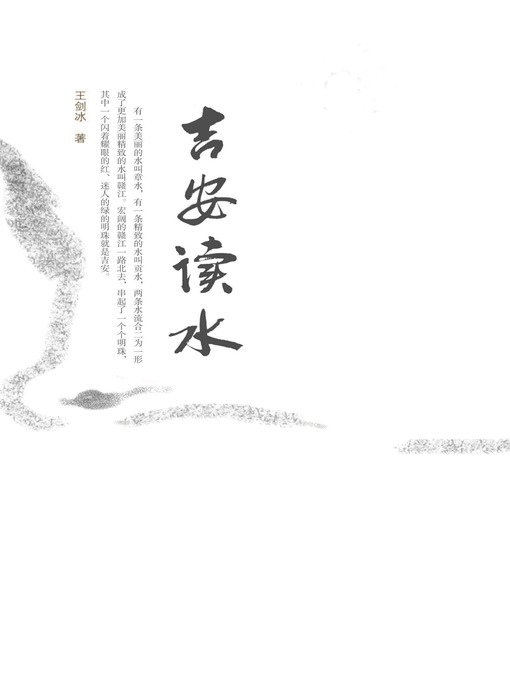 吉安读水
有一条美丽的水叫章水，有一条精致的水叫贡水，两条水流合二为一形
成了更加美丽精致的水叫赣江。宏阔的赣江一路北去，串起了一个个明珠，
其中一个闪着耀眼的红、迷人的绿的明珠就是吉安。
王剑冰 著